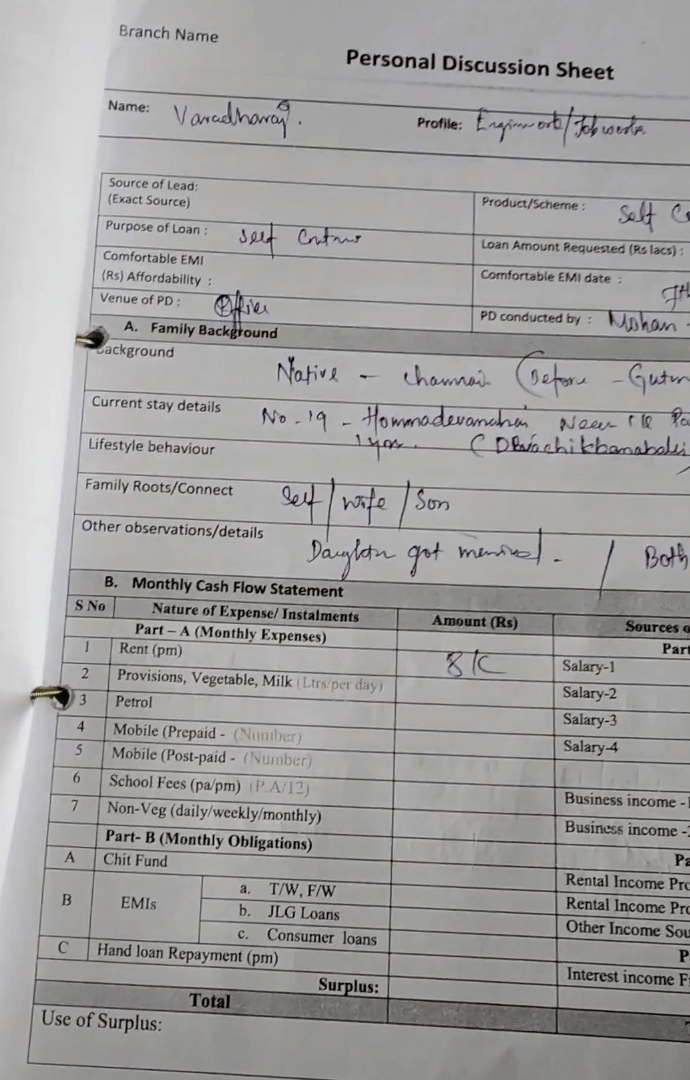 Branch Name
Personal Discussion Sheet
Name: Varadharaj. Profile:
Source of Lead:
(Exact Source) Product/Scheme : Self
Purpose of Loan : Self Loan Amount Requested (Rs lacs) :
Comfortable EMI
(Rs) Affordability : Comfortable EMI date : 7th
Venue of PD : Office PD conducted by : Mohan.
A. Family Background
Background Native - Chennai (Before -
Current stay details No. 19 - Near
Lifestyle behaviour
Family Roots/Connect Self / Wife / Son
Other observations/details Daughter got married. / Both
B. Monthly Cash Flow Statement
S No Nature of Expense/ Instalments Amount (Rs) Sources
Part – A (Monthly Expenses)
1 Rent (pm) 8K Salary-1
2 Provisions, Vegetable, Milk (Ltrs/per day) Salary-2
3 Petrol Salary-3
4 Mobile (Prepaid - (Number) Salary-4
5 Mobile (Post-paid - (Number)
6 School Fees (pa/pm) (P.A/12) Business income -
7 Non-Veg (daily/weekly/monthly) Business income -
Part- B (Monthly Obligations)
A Chit Fund
B EMIs a. T/W, F/W Rental Income
b. JLG Loans Rental Income
c. Consumer loans Other Income
C Hand loan Repayment (pm)
Surplus: Interest income
Total
Use of Surplus: